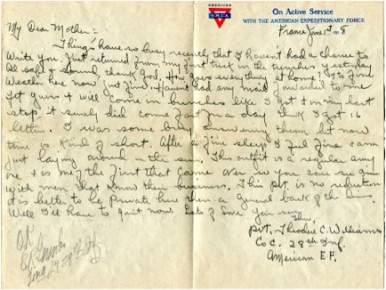 On Active Service
WITH THE AMERICAN EXPEDITIONARY FORCE
Y.M.C.A.
France June 1st
My Dear Mother:-
Things have so busy recently that I haven't had a chance to
write you. Just returned from my first trick in the trenches yesterday
all safe & sound, thank God. How goes every thing at home?
Weather here now just fine. Haven't had any mail forwarded to me
yet guess it will come in bunches like I got in my last
stop, it surely did come fast for a day think I got 16
letters. I was some busy answering them but now
time is kind of short. After a fine sleep I feel fine & am
just laying around in the sun. This outfit is a regular army
one & is one of the first that came over so you can see I'm
with men that know their business. This pvt. is no reduction
it is better to be private here than a general back of the lines.
Well I'll have to quit now. Lots of love your son
Theo,
Pvt. Theodore C. Williams
Co C. 28th Inf.
American E.F.
OK